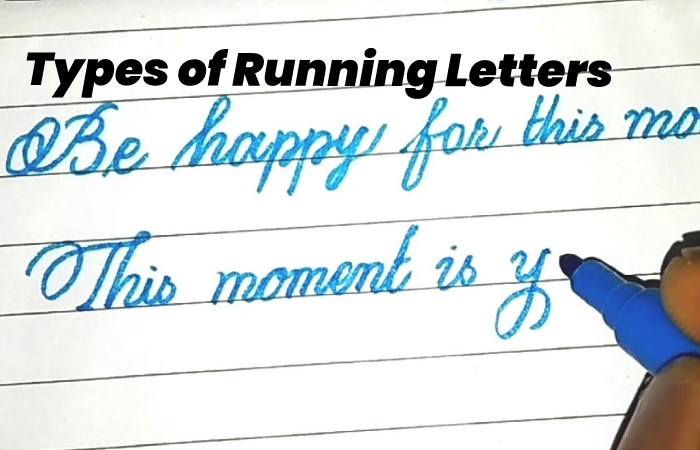 Types of Running Letters
Be happy for this mo
This moment is y